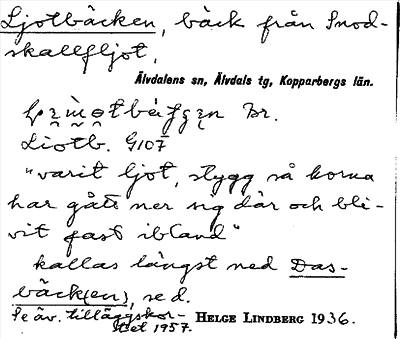 Ljotbäcken, bäck från Snod-
skallfljot.
Älvdalens sn, Älvdals tg, Kopparbergs län.
Br.
Liotb. G107
"varit ljot, stygg så korna
har gått ner sig där och bli-
vit fast ibland"
kallas längst ned Das-
bäck(en), se d.
Se äv. tilläggskor-
tet 1957. HELGE LINDBERG 1936.